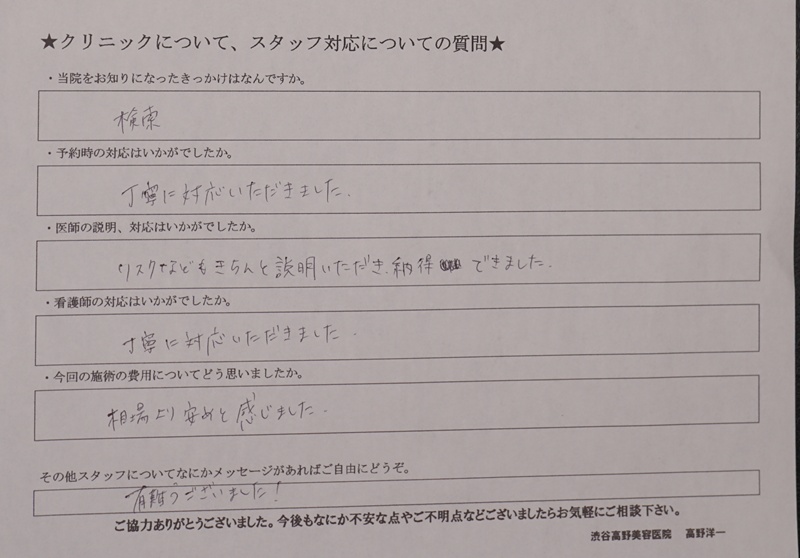 ★クリニックについて、スタッフ対応についての質問★
・当院をお知りになったきっかけはなんですか。
検索
・予約時の対応はいかがでしたか。
丁寧に対応いただきました.
・医師の説明、対応はいかがでしたか。
リスクなどもきちんと説明いただき、納得できました.
・看護師の対応はいかがでしたか。
丁寧に対応いただきました.
・今回の施術の費用についてどう思いましたか。
相場より安めと感じました.
その他スタッフについてなにかメッセージがあればご自由にどうぞ。
有難うございました!
ご協力ありがとうございました。今後もなにか不安な点やご不明点などございましたらお気軽にご相談下さい。
渋谷高野美容医院 高野洋一